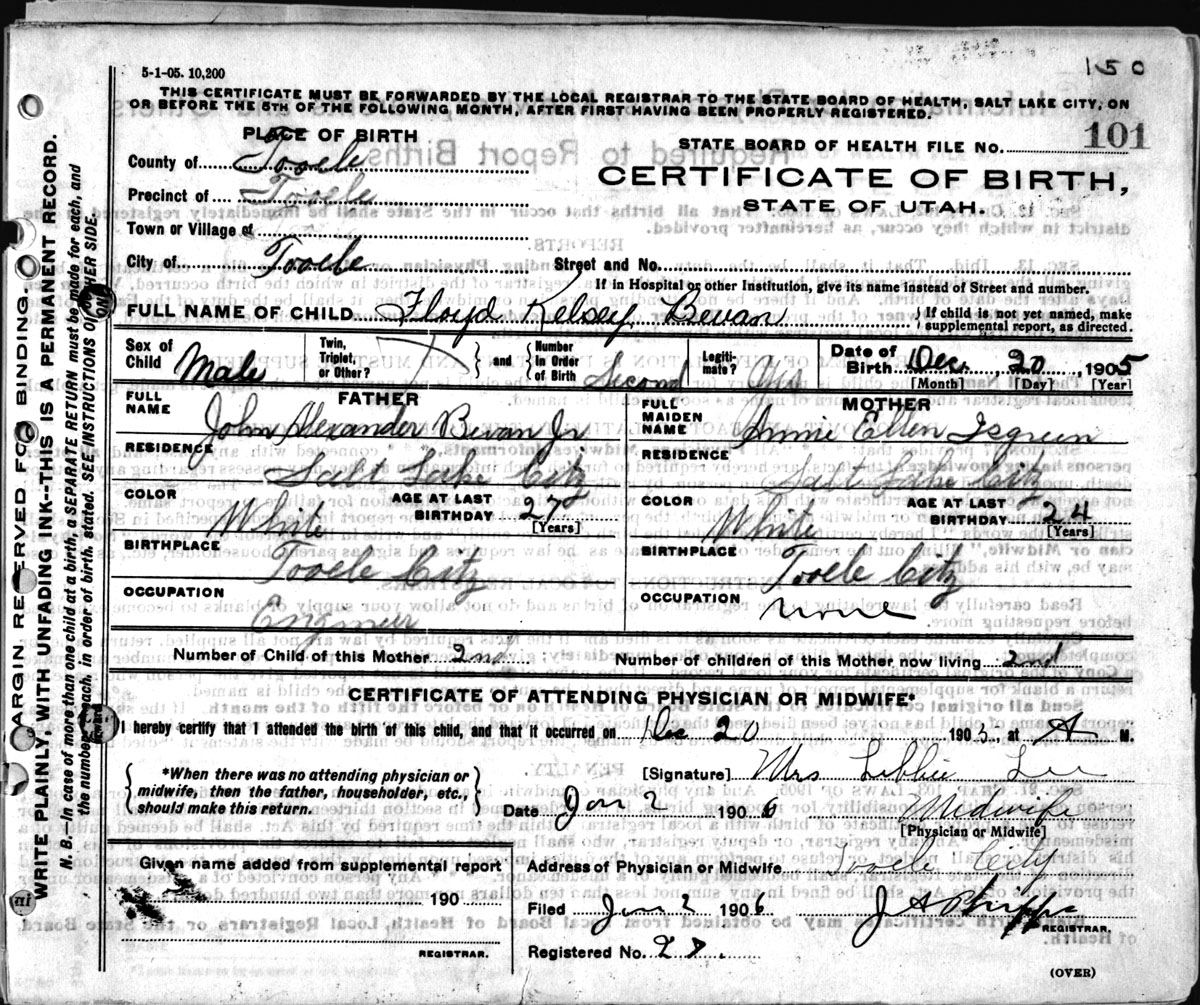 150
5-1-05. 10,200
THIS CERTIFICATE MUST BE FORWARDED BY THE LOCAL REGISTRAR TO THE STATE BOARD OF HEALTH, SALT LAKE CITY, ON
OR BEFORE THE 5TH OF THE FOLLOWING MONTH, AFTER FIRST HAVING BEEN PROPERLY REGISTERED.
PLACE OF BIRTH
STATE BOARD OF HEALTH FILE NO. 101
County of Tooele
CERTIFICATE OF BIRTH,
Precinct of Tooele
STATE OF UTAH.
Town or Village of
City of Tooele Street and No.
If in Hospital or other Institution, give its name instead of Street and number.
FULL NAME OF CHILD Floyd Kelsey Bevan { If child is not yet named, make supplemental report, as directed.
Sex of Child Male Twin, Triplet, or Other? } and { Number in Order of Birth Second Legiti-mate? Yes Date of Birth Dec. 20, 1905
[Month] [Day] [Year]
FATHER
MOTHER
FULL NAME John Alexander Bevan Jr
FULL MAIDEN NAME Annie Ellen Isgreen
RESIDENCE Salt Lake City
RESIDENCE Salt Lake City
COLOR White AGE AT LAST BIRTHDAY 27 [Years]
COLOR White AGE AT LAST BIRTHDAY 24 [Years]
BIRTHPLACE Tooele City
BIRTHPLACE Tooele City
OCCUPATION Engineer
OCCUPATION None
Number of Child of this Mother 2nd Number of children of this Mother now living 2nd
CERTIFICATE OF ATTENDING PHYSICIAN OR MIDWIFE*
I hereby certify that I attended the birth of this child, and that it occurred on Dec 20 1905, at A M.
{ *When there was no attending physician or midwife, then the father, householder, etc., should make this return. }
[Signature] Mrs Libbie Lee
Date Jan 2 1906 Midwife
[Physician or Midwife]
Given name added from supplemental report
190
REGISTRAR.
Address of Physician or Midwife Tooele City
Filed Jan 2 1906 J A Phipps
REGISTRAR.
Registered No. 28.
(OVER)
MARGIN RESERVED FOR BINDING.
WRITE PLAINLY, WITH UNFADING INK--THIS IS A PERMANENT RECORD.
N. B.--In case of more than one child at a birth, a SEPARATE RETURN must be made for each, and
the number of each, in order of birth, stated. SEE INSTRUCTIONS ON OTHER SIDE.